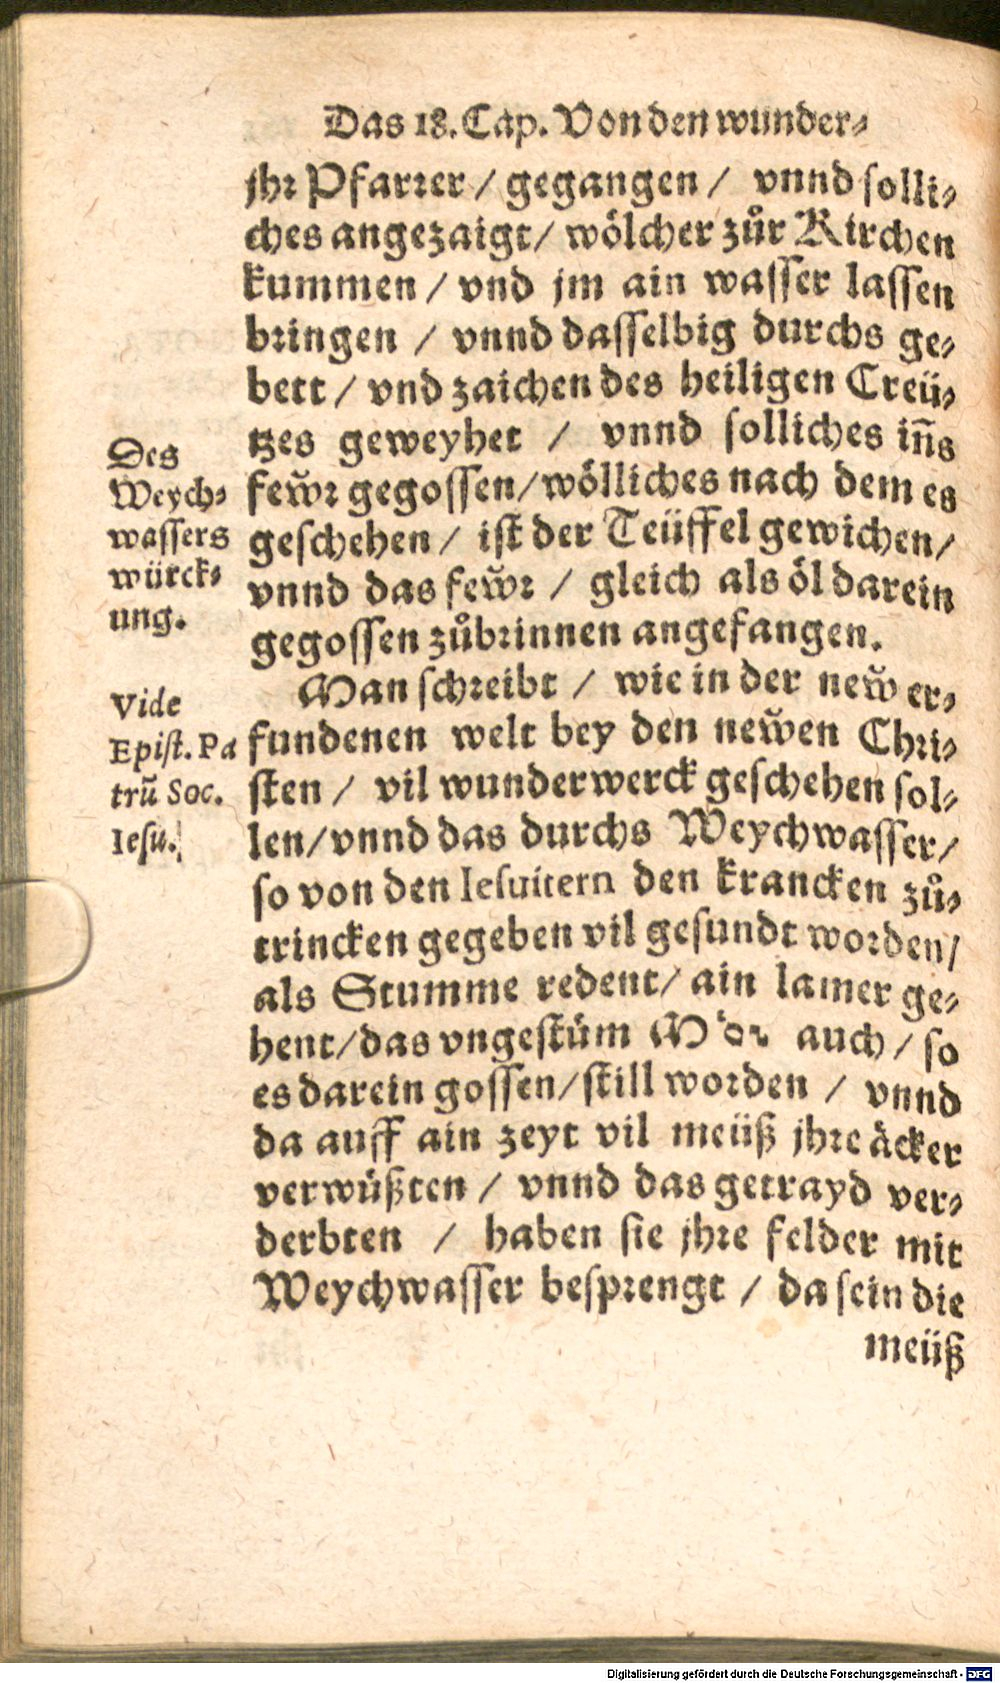 Das 18. Cap. Von den wunder⸗
jhꝛ Pfarꝛer / gegangen / vnnd ſolli⸗
ches angezaigt / wölcher zůr Kirchen
kummen / vnd jm ain waſſer laſſen
bꝛingen / vnnd daſſelbig durchs ge⸗
bett / vnd zaichen des heiligen Creü⸗
tzes geweyhet / vnnd ſolliches iñs
few̆ꝛ gegoſſen / wölliches nach dem es
geſchehen / iſt der Teüffel gewichen /
vnnd das few̆ꝛ / gleich als öl darein
gegoſſen zůbꝛinnen angefangen.
Des
Weych⸗
waſſers
würck⸗
ung.
Man ſchꝛeibt / wie in der new̆ er⸗
fundenen welt bey den new̆en Chꝛi⸗
ſten / vil wunderwerck geſchehen ſol⸗
len / vnnd das durchs Weychwaſſer /
ſo von den Ieſuitern den krancken zů⸗
trincken gegeben vil geſundt woꝛden /
als Stumme redent / ain lamer ge⸗
hent / das vngeſtüm auch / ſo
es darein goſſen / ſtill woꝛden / vnnd
da auff ain zeyt vil meüß jhꝛe äcker
verwüßten / vnnd das getrayd ver⸗
derbten / haben ſie jhꝛe felder mit
Weychwaſſer beſpꝛengt / da ſein die
meüß
Vide
Epiſt. Pa
trũ Soc.
Ieſu.
Digitalisierung gefördert durch die Deutsche Forschungsgemeinschaft - DFG